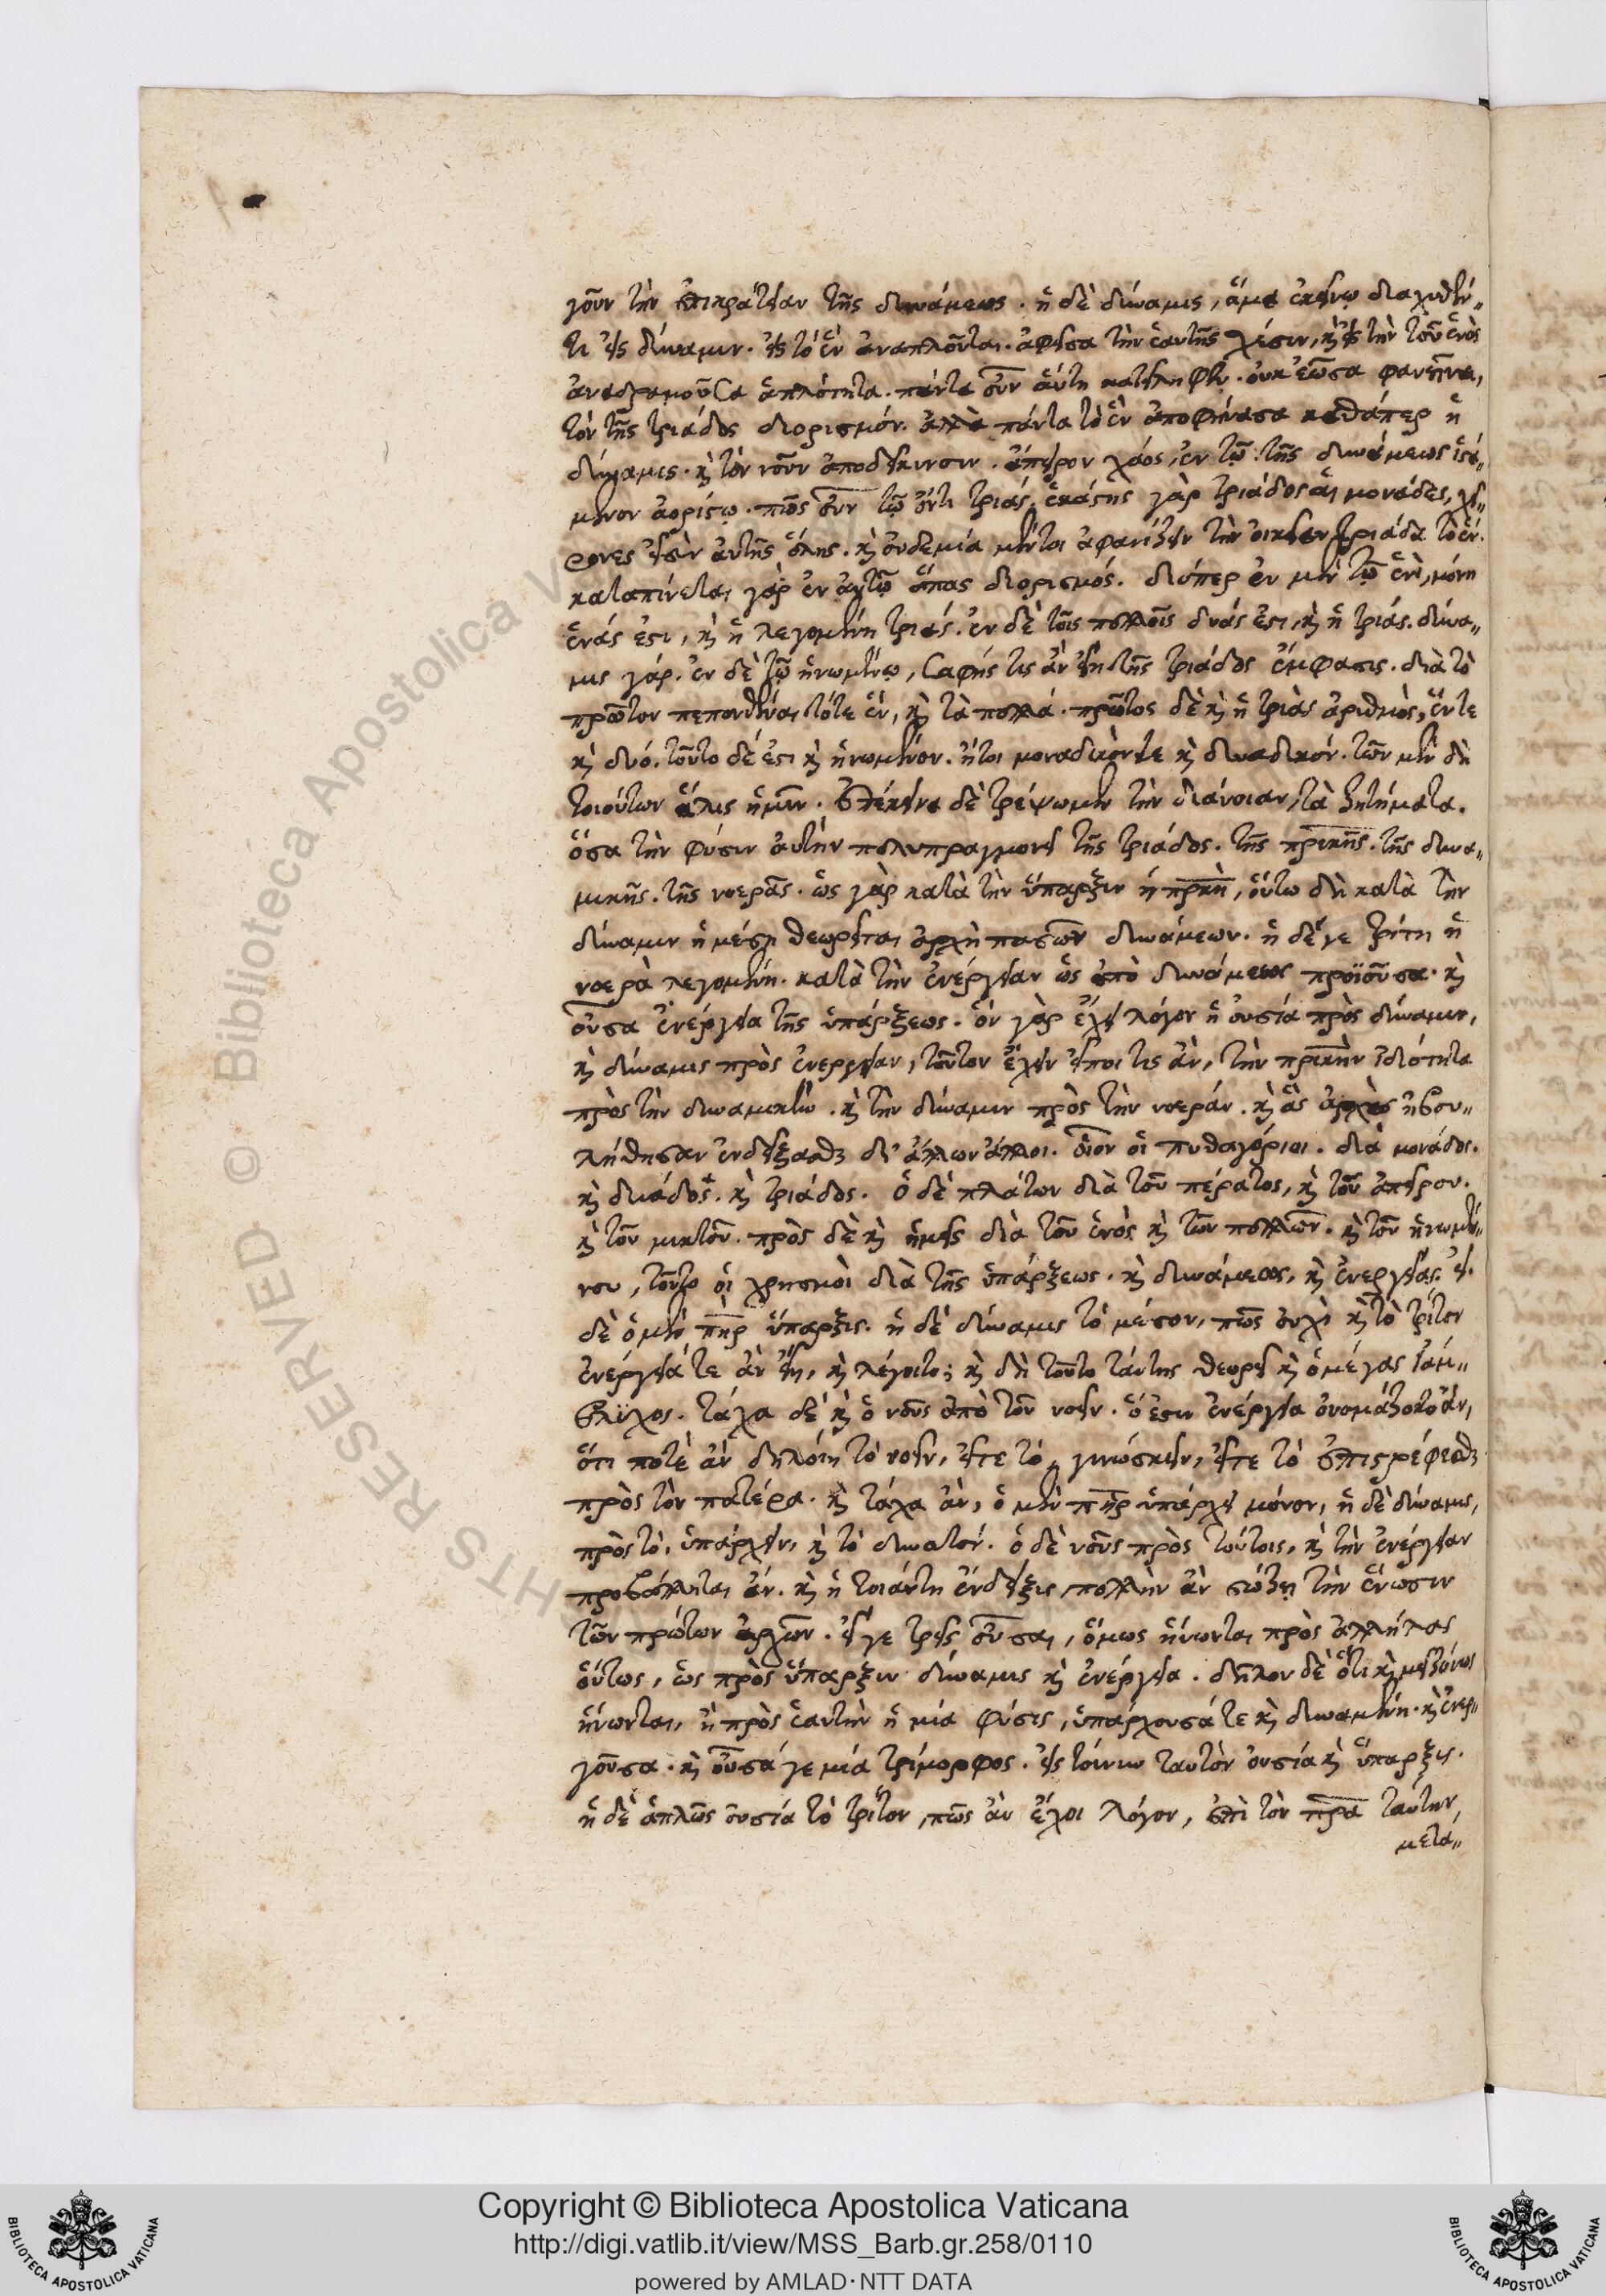 γοῦν τὴν ἐπικράτειαν τῆς δυνάμεως. ἡ δὲ δύναμις, ἅμα ἐκείνῳ διαχυθέν-
τι εἰς δύναμιν. εἰς τὸ ἓν ἀναπλοῦται. ἀφεῖσα τὴν ἑαυτῆς χύσιν, κỳ εἰς τὴν τοῦ ἑνὸς
ἀναδραμοῦσα ἁπλότητα. πάντα οὖν αὕτη κατείληφεν. οὐκ ἐῶσα φανῆναι,
τὸν τῆς τριάδος διορισμόν. ἀλλὰ πάντα τὸ ἓν ἀποφήνασα καθάπερ ἡ
δύναμις. καὶ τὸν νοῦν ἀποδείκνυσιν. ἄπειρον χάος, ἐν τῷ τῆς δυνάμεως ἱστά-
μενον ἀορίστῳ. πῶς οὖν τῷ ὄντι τριάς. ἑκάστης γὰρ τριάδος αἱ μονάδες, χεί-
ρονες εἰσὶν αὐτῆς ὅλης. καὶ οὐδεμία μέντοι ἀφανίζειν τὴν οἰκείαν τριάδα τὸ ἕν.
καταπίνεται γὰρ ἐν αὐτῷ ἅπας διορισμός. διόπερ ἐν μὲν τῷ ἑνὶ, μόνη
ἑνάς ἐστι, καὶ ἡ λεγομένη τριάς. ἐν δὲ τοῖς πολλοῖς δυάς ἐστι, καὶ ἡ τριάς. δύνα-
μις γάρ. ἐν δὲ τῷ ἡνωμένῳ, σαφής τις ἂν εἴη τῆς τριάδος ἔμφασις. διὰ τὸ
πρῶτον πεπονθέναι τότε ἕν, καὶ τὰ πολλά. πρῶτος δὲ καὶ ἡ τριὰς ἀριθμὸς, ἕν τε
καὶ δύο. τοῦτο δέ ἐστι καὶ ἡνωμένον. ἤτοι μοναδικόν τε καὶ δυαδικόν. τῶν μὲν δὴ
τοιούτων ἅλις ἡμῖν. ἐπέκεινα δὲ τρέψωμεν τὴν διάνοιαν, τὰ ζητήματα.
ὅσα τὴν φύσιν αὐτὴν πολυπραγμονεῖ τῆς τριάδος. τῆς πρικῆς. τῆς δυνα-
μικῆς. τῆς νοερᾶς. ὡς γὰρ κατὰ τὴν ὕπαρξιν ἡ πρκὴ, οὕτω δὴ κατὰ τὴν
δύναμιν ἡ μέση θεωρεῖται ἀρχὴ πασῶν δυνάμεων. ἡ δέ γε τρίτη ἡ
νοερὰ λεγομένη. κατὰ τὴν ἐνέργειαν ὡς ἀπὸ δυνάμεως προϊοῦσα. καὶ
οὖσα ἐνέργεια τῆς ὑπάρξεως. ὃν γὰρ ἔχει λόγον ἡ οὐσία πρὸς δύναμιν,
καὶ δύναμις πρὸς ἐνέργειαν, τοῦτον ἔχειν εἴποι τις ἂν, τὴν πρικὴν ἰδιότητα
πρὸς τὴν δυναμικὴν. καὶ τὴν δύναμιν πρὸς τὴν νοεράν. καὶ ἃς ἀρχὰς ἠβου-
λήθησαν ἐνδείξασθαι δι' ἄλλων ἄλλοι. οἷον οἱ πυθαγόριοι. διὰ μονάδος.
καὶ δυάδος. καὶ τριάδος. ὁ δὲ πλάτων διὰ τοῦ πέρατος, καὶ τοῦ ἀπείρου.
καὶ τοῦ μικτοῦ. πρὸς δὲ καὶ ἡμεῖς διὰ τοῦ ἑνὸς καὶ τῶν πολλῶν. καὶ τοῦ ἡνωμέ-
νου, τοῦτο οἱ χρησμοὶ διὰ τῆς ὑπάρξεως. καὶ δυνάμεως, καὶ ἐνεργείας. εἰ
δὲ ὁ μὲν πὴρ ὕπαρξις. ἡ δὲ δύναμις τὸ μέσον, πῶς οὐχὶ καὶ τὸ τρίτον
ἐνέργειά τε ἂν εἴη, καὶ λέγοιτο; καὶ δὴ τοῦτο ταύτης θεωρεῖ καὶ ὁ μέγας ἰάμ-
βλιχος. τάχα δὲ καὶ ὁ νοῦς ἀπὸ τοῦ νοεῖν. ὅ ἐστιν ἐνέργεια ὀνομάζοιτο ἄν,
ὅτι ποτὲ ἂν δηλοίη τὸ νοεῖν, εἴτε τὸ γινώσκειν, εἴτε τὸ ἐπιστρέφεσθαι
πρὸς τὸν πατέρα. καὶ τάχα ἂν, ὁ μὲν πὴρ ὑπάρχει μόνον, ἡ δὲ δύναμις,
πρὸς τὸ, ὑπάρχειν, καὶ τὸ δυνατόν. ὁ δὲ νοῦς πρὸς τούτοις, καὶ τὴν ἐνέργειαν
προβάλληται ἄν. καὶ ἡ τοιαύτη ἔνδειξις, πολλὴν ἂν σώζῃ τὴν ἕνωσιν
τῶν πρώτων ἀρχῶν. εἴγε τρεῖς οὖσαι, ὅμως ἥνωνται πρὸς ἀλλήλας
οὕτως, ὡς πρὸς ὕπαρξιν δύναμις καὶ ἐνέργεια. δῆλον δὲ ὅτι καὶ μειζόνως
ἥνωνται, ἢ πρὸς ἑαυτὴν ἡ μία φύσις, ὑπάρχουσά τε καὶ δυναμένη. καὶ ἐνερ-
γοῦσα. καὶ οὖσά γε μία τρίμορφος. εἰς τοίνυν ταυτὸν οὐσία καὶ ὕπαρξις.
ἡ δὲ ἁπλῶς οὐσία τὸ τρίτον, πῶς ἂν ἔχοι λόγον, ἐπὶ τὸν πρα ταύτην,
μετά-
Copyright © Biblioteca Apostolica Vaticana
http://digi.vatlib.it/view/MSS_Barb.gr.258/0110
powered by AMLAD·NTT DATA